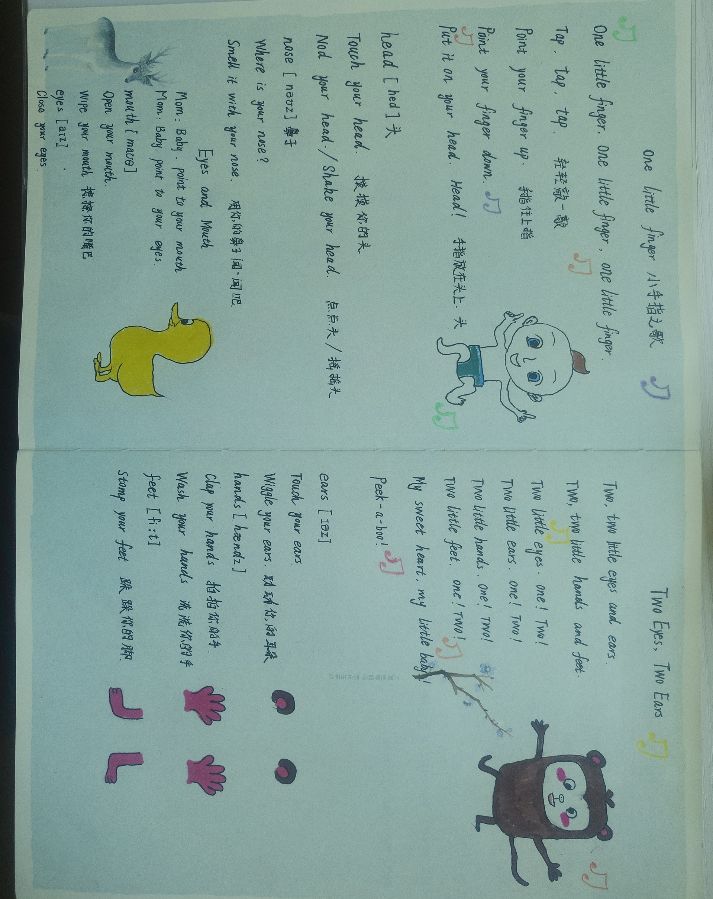 One little finger 小手指之歌
One little finger, one little finger, one little finger.
Tap, tap, tap. 轻轻敲一敲
Point your finger up. 手指往上指
Point your finger down.
Put it on your head. Head! 手指放在头上. 头
head [hed] 头
Touch your head. 摸摸你的头
Nod your head. / Shake your head. 点点头 / 摇摇头
nose [nəʊz] 鼻子
Where is your nose?
Smell it with your nose. 用你的鼻子闻一闻吧
Eyes and Mouth
Mom: Baby, point to your mouth
Mom: Baby point to your eyes.
mouth [maʊθ]
Open your mouth.
Wipe your mouth 擦擦你的嘴巴
eyes [aɪz].
Close your eyes.
Two Eyes, Two Ears
Two, two little eyes and ears
Two, two little hands and feet.
Two little eyes. one! Two!
Two little ears. one! Two!
Two little hands. one! Two!
Two little feet. one! Two!
My sweet heart. my little baby!
Peek-a-boo!
ears [ɪəz]
Touch your ears
Wiggle your ears. 动动你的耳朵
hands [hændz]
Clap your hands 拍拍你的手
Wash your hands 洗洗你的手
feet [fi:t]
Stomp your feet 跺跺你的脚.